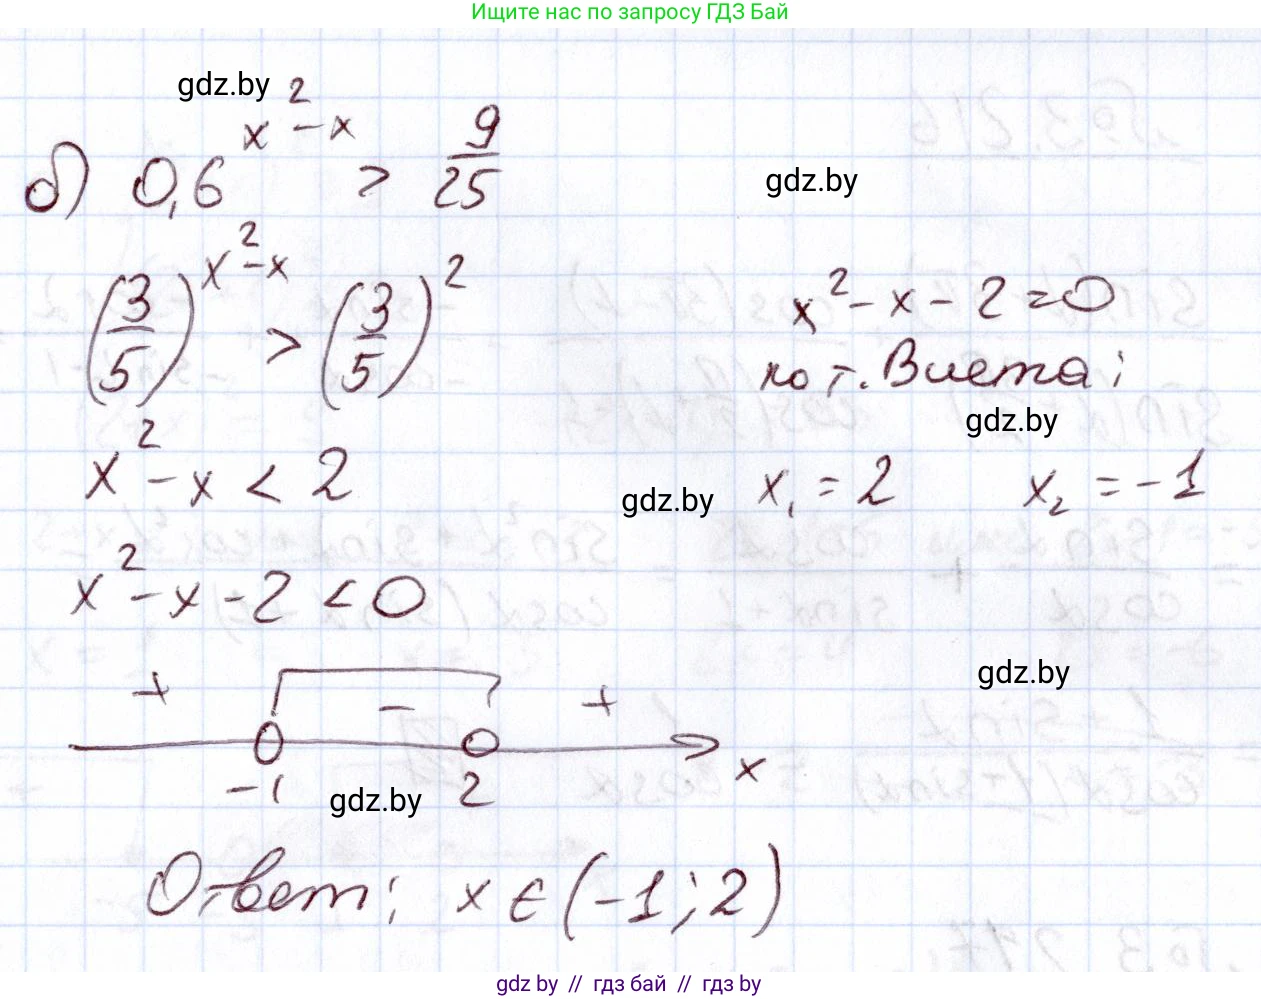 Ищите нас по запросу ГДЗ Бай
gdz.by
б) 0,6^(x²-x) > 9/25
gdz.by
(3/5)^(x²-x) > (3/5)²
x² - x - 2 = 0
по т. Виета:
gdz.by
x² - x < 2
gdz.by
x₁ = 2 x₂ = -1
x² - x - 2 < 0
gdz.by
+ - +
-1 2 x
gdz.by
Ответ: x ∈ (-1; 2)
gdz.by // гдз бай // gdz.by